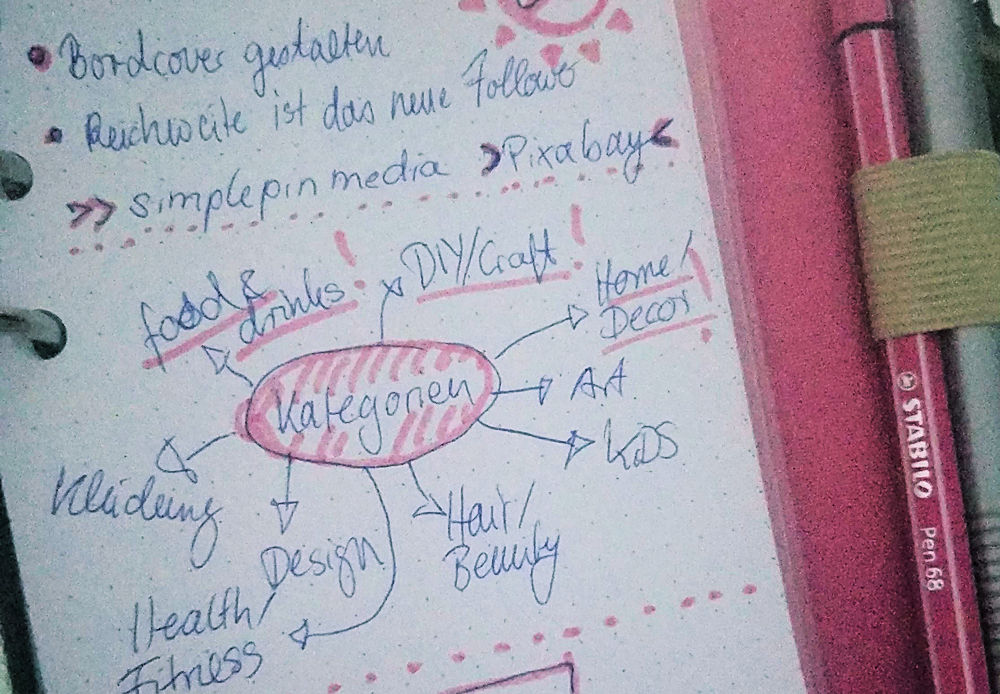 • Bordcover gestalten
• Reichweite ist das neue Follower
>> simplepin media >Pixabay<
food &
drinks!
DIY/Craft!
Home/
Decor!
Kategorien
Art
KiDS
Kleidung
Design
Hair/
Beauty
Health/
Fitness
STABILO Pen 68